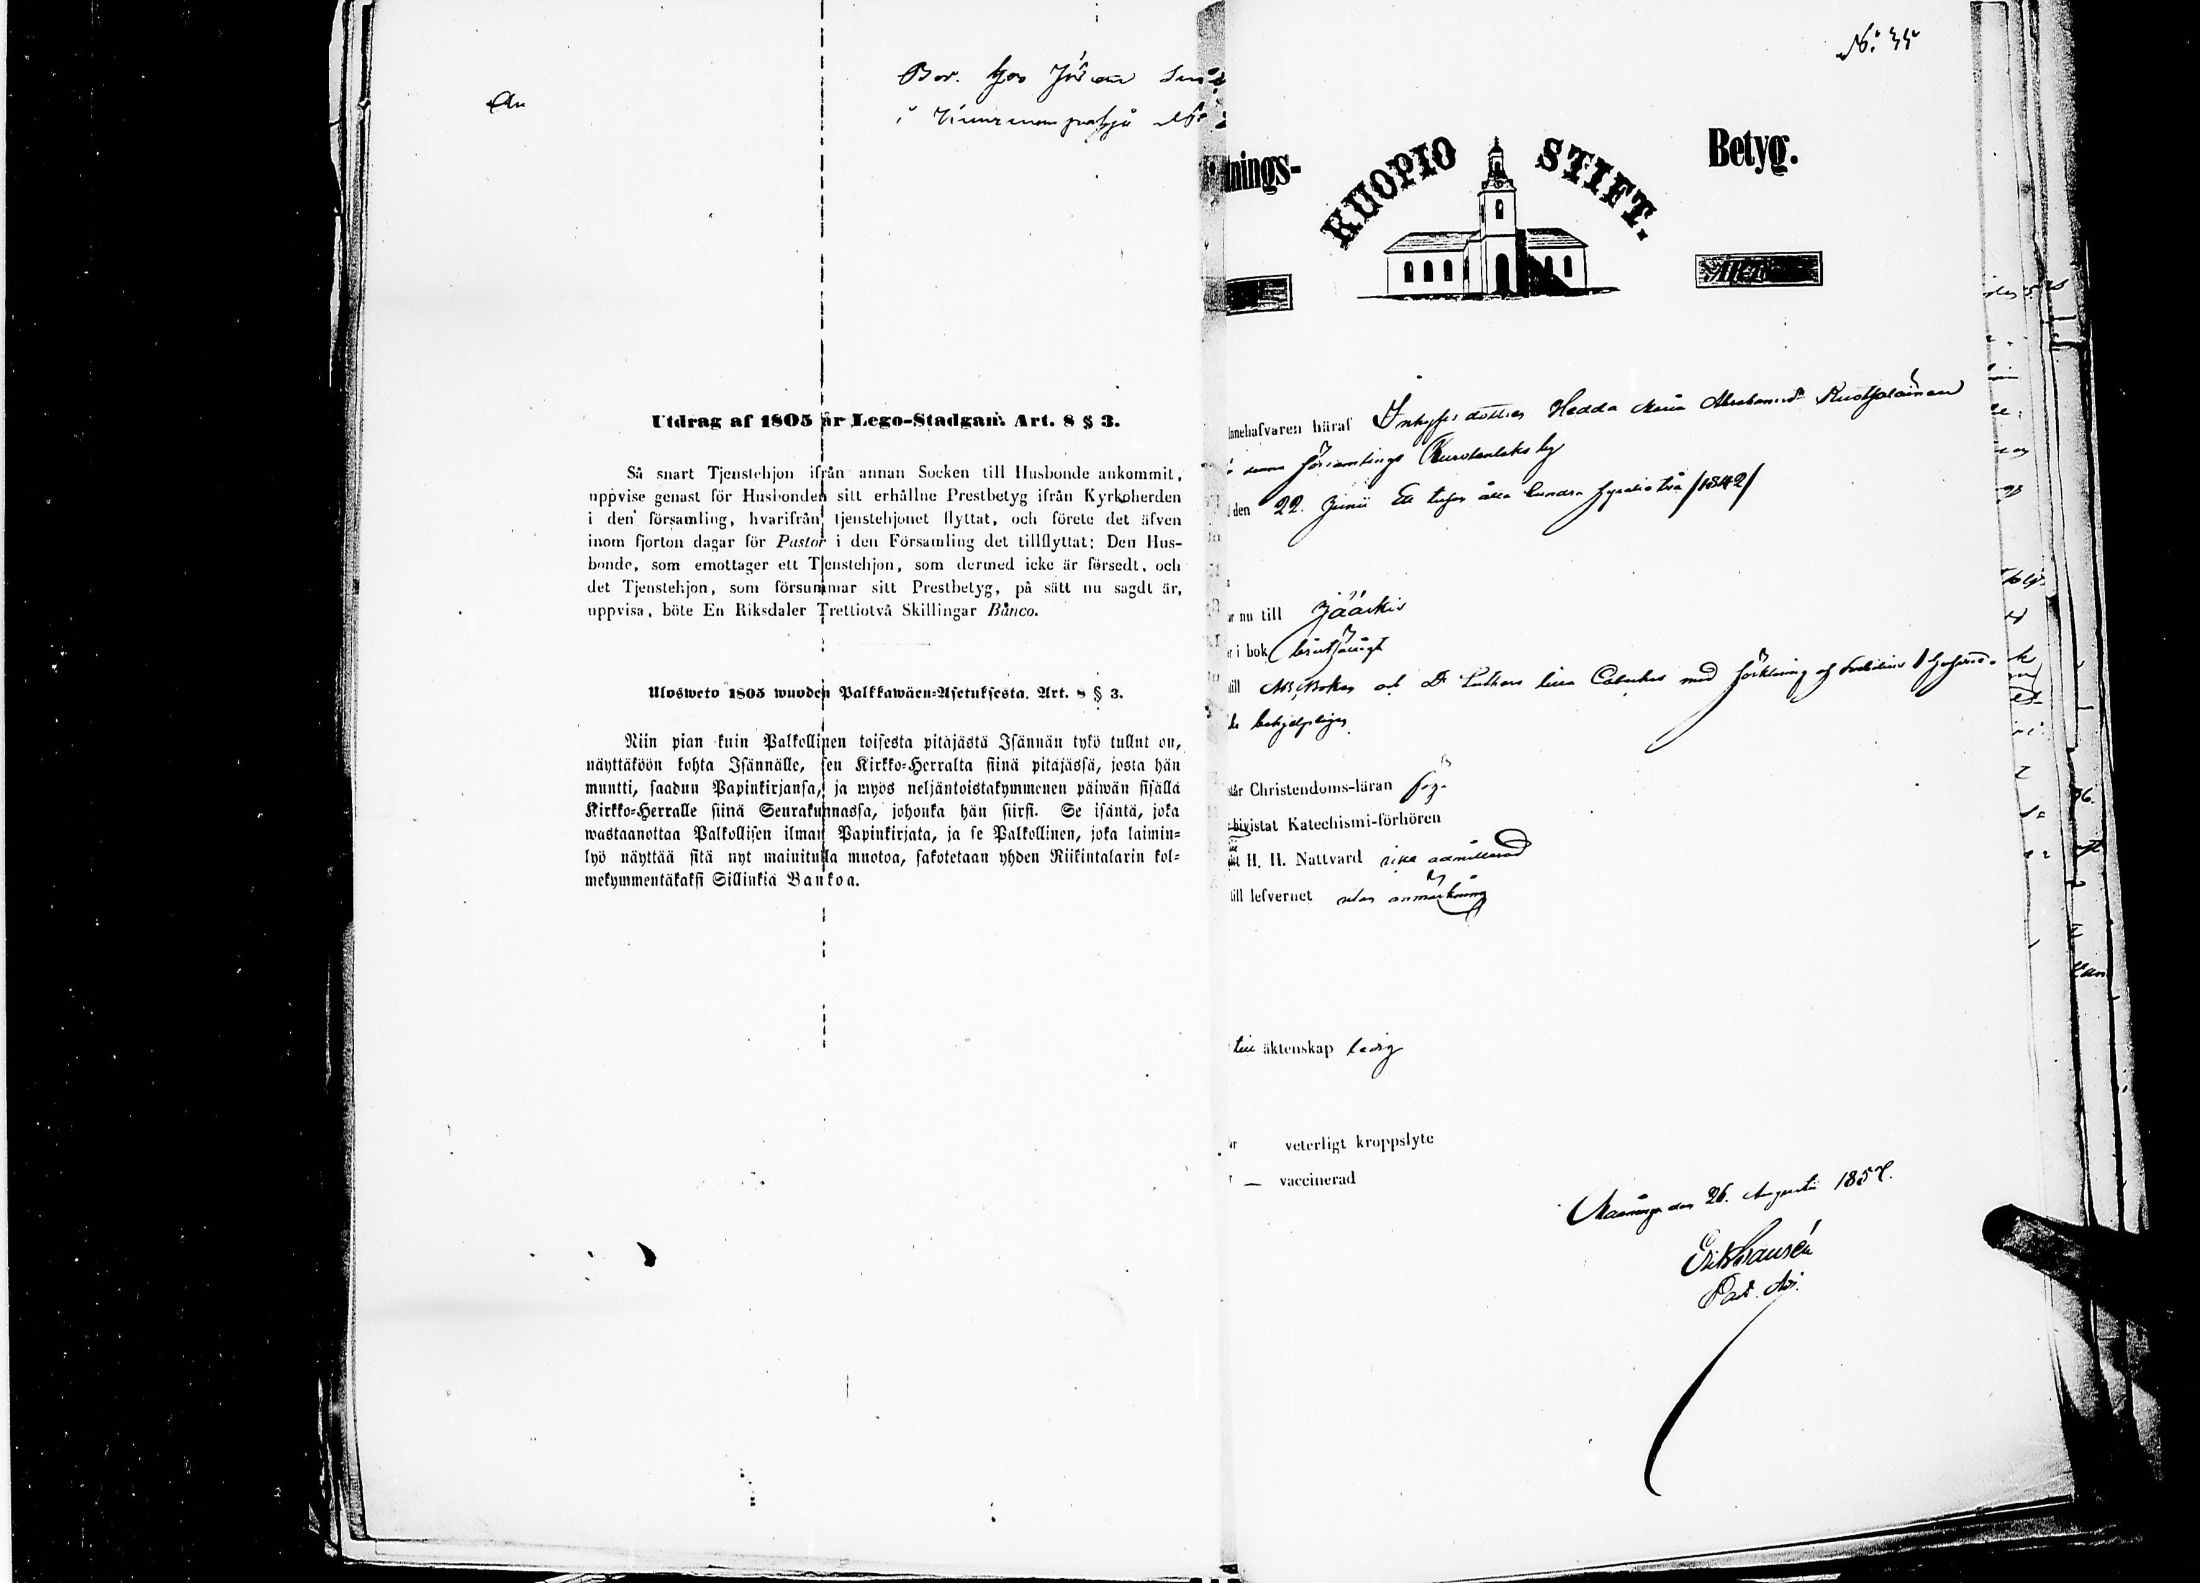 An
Bor. hos
i
Utdrag af 1805 år Lego-Stadgan. Art. 8 § 3.
Så snart Tjenstehjon ifrån annan Socken till Husbonde ankommit,
uppvise genast för Husbonden sitt erhållne Prestbetyg ifrån Kyrkoherden
i den församling, hvarifrån tjenstehjonet flyttat, och förete det äfven
inom fjorton dagar för Pastor i den Församling det tillflyttat; Den Hus-
bonde, som emottager ett Tjenstehjon, som dermed icke är försedt, och
det Tjenstehjon, som försummar sitt Prestbetyg, på sätt nu sagdt är,
uppvisa, böte En Riksdaler Trettiotvå Skillingar Banco.
Ulosweto 1805 wuoden Palkkawäen-Asetuksesta. Art. 8 § 3.
Niin pian kuin Palkollinen toisesta pitäjästä Isännän tykö tullut on,
näyttäköön kohta Isännälle, sen Kirkko-Herralta siinä pitäjässä, josta hän
muutti, saadun Papinkirjansa, ja myös neljäntoistakymmenen päiwän sisällä
Kirkko-Herralle siinä Seurakunnassa, johonka hän siirsi. Se isäntä, joka
wastaanottaa Palkollisen ilman Papinkirjata, ja se Palkollinen, joka laimin-
lyö näyttää sitä nyt mainitulla muotoa, sakotetaan yhden Riikintalarin kol-
mekymmentäkaksi Sillinkiä Bankoa.
nings-
KUOPIO STIFT.
Betyg.
Innehafvaren häraf Inhyses dottren Hedda Maria Abrahamsd
i denna församlings by
den 22 Junii Ett tusen åtta hundra fyratio två /1842/
nu till Jääskis
i bok
till ABC Boken och D Luthers lilla med förklaring af
Christendoms-läran
bivistat Katechismi-förhören
H. H. Nattvard icke admitterad
till lefvernet utan anmärkning
till äktenskap ledig
veterligt kroppslyte
— vaccinerad
Maaninga den 26. Augusti 1857.